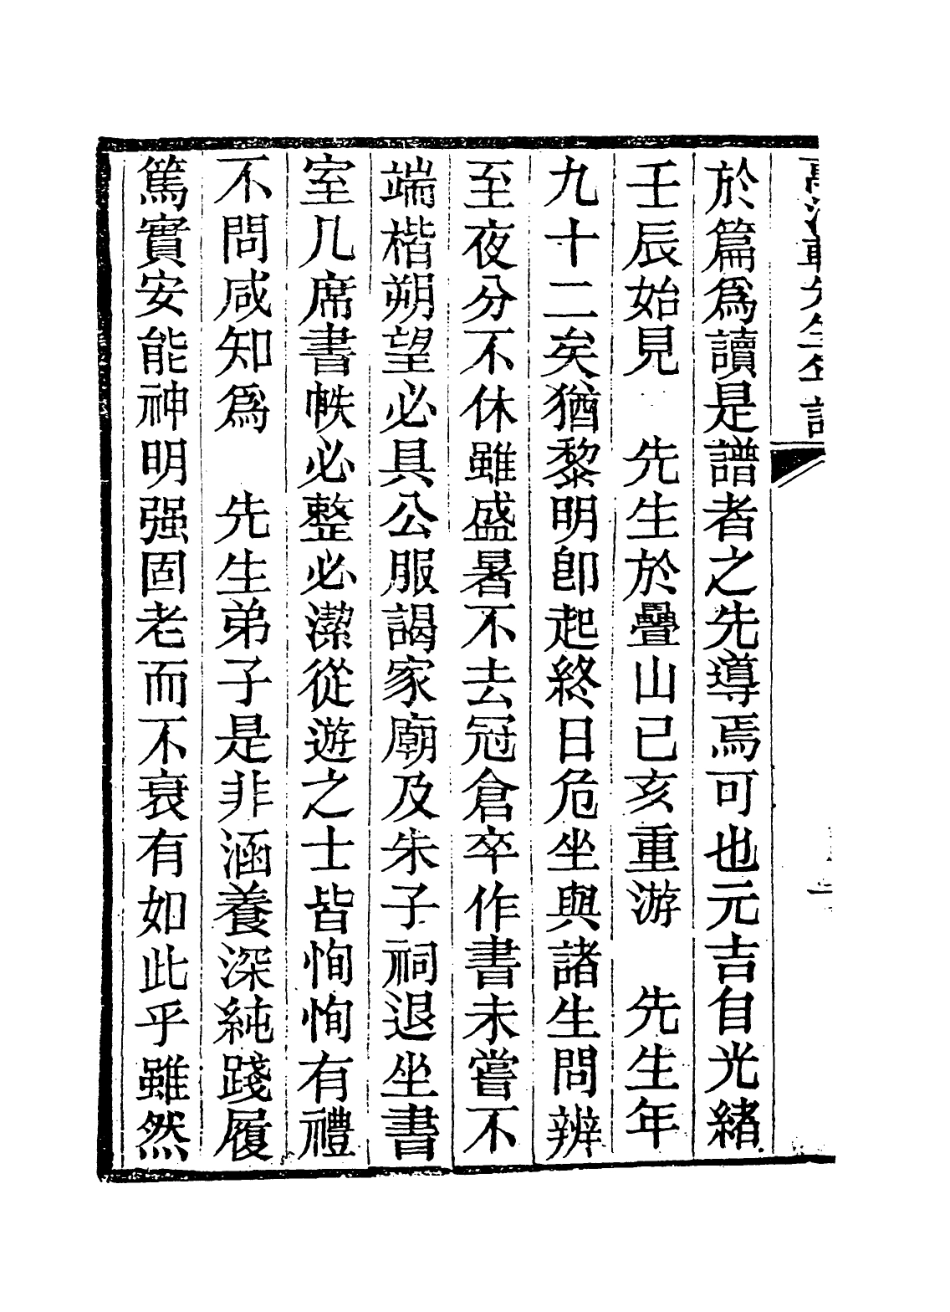 於篇爲讀是譜者之先導焉可也元吉自光緒
壬辰始見　先生於疊山己亥重游　先生年
九十二矣猶黎明卽起終日危坐與諸生問辨
至夜分不休雖盛暑不去冠倉卒作書未嘗不
端楷朔望必具公服謁家廟及朱子祠退坐書
室几席書帙必整必潔從遊之士皆恂恂有禮
不問咸知爲　先生弟子是非涵養深純踐履
篤實安能神明强固老而不衰有如此乎雖然